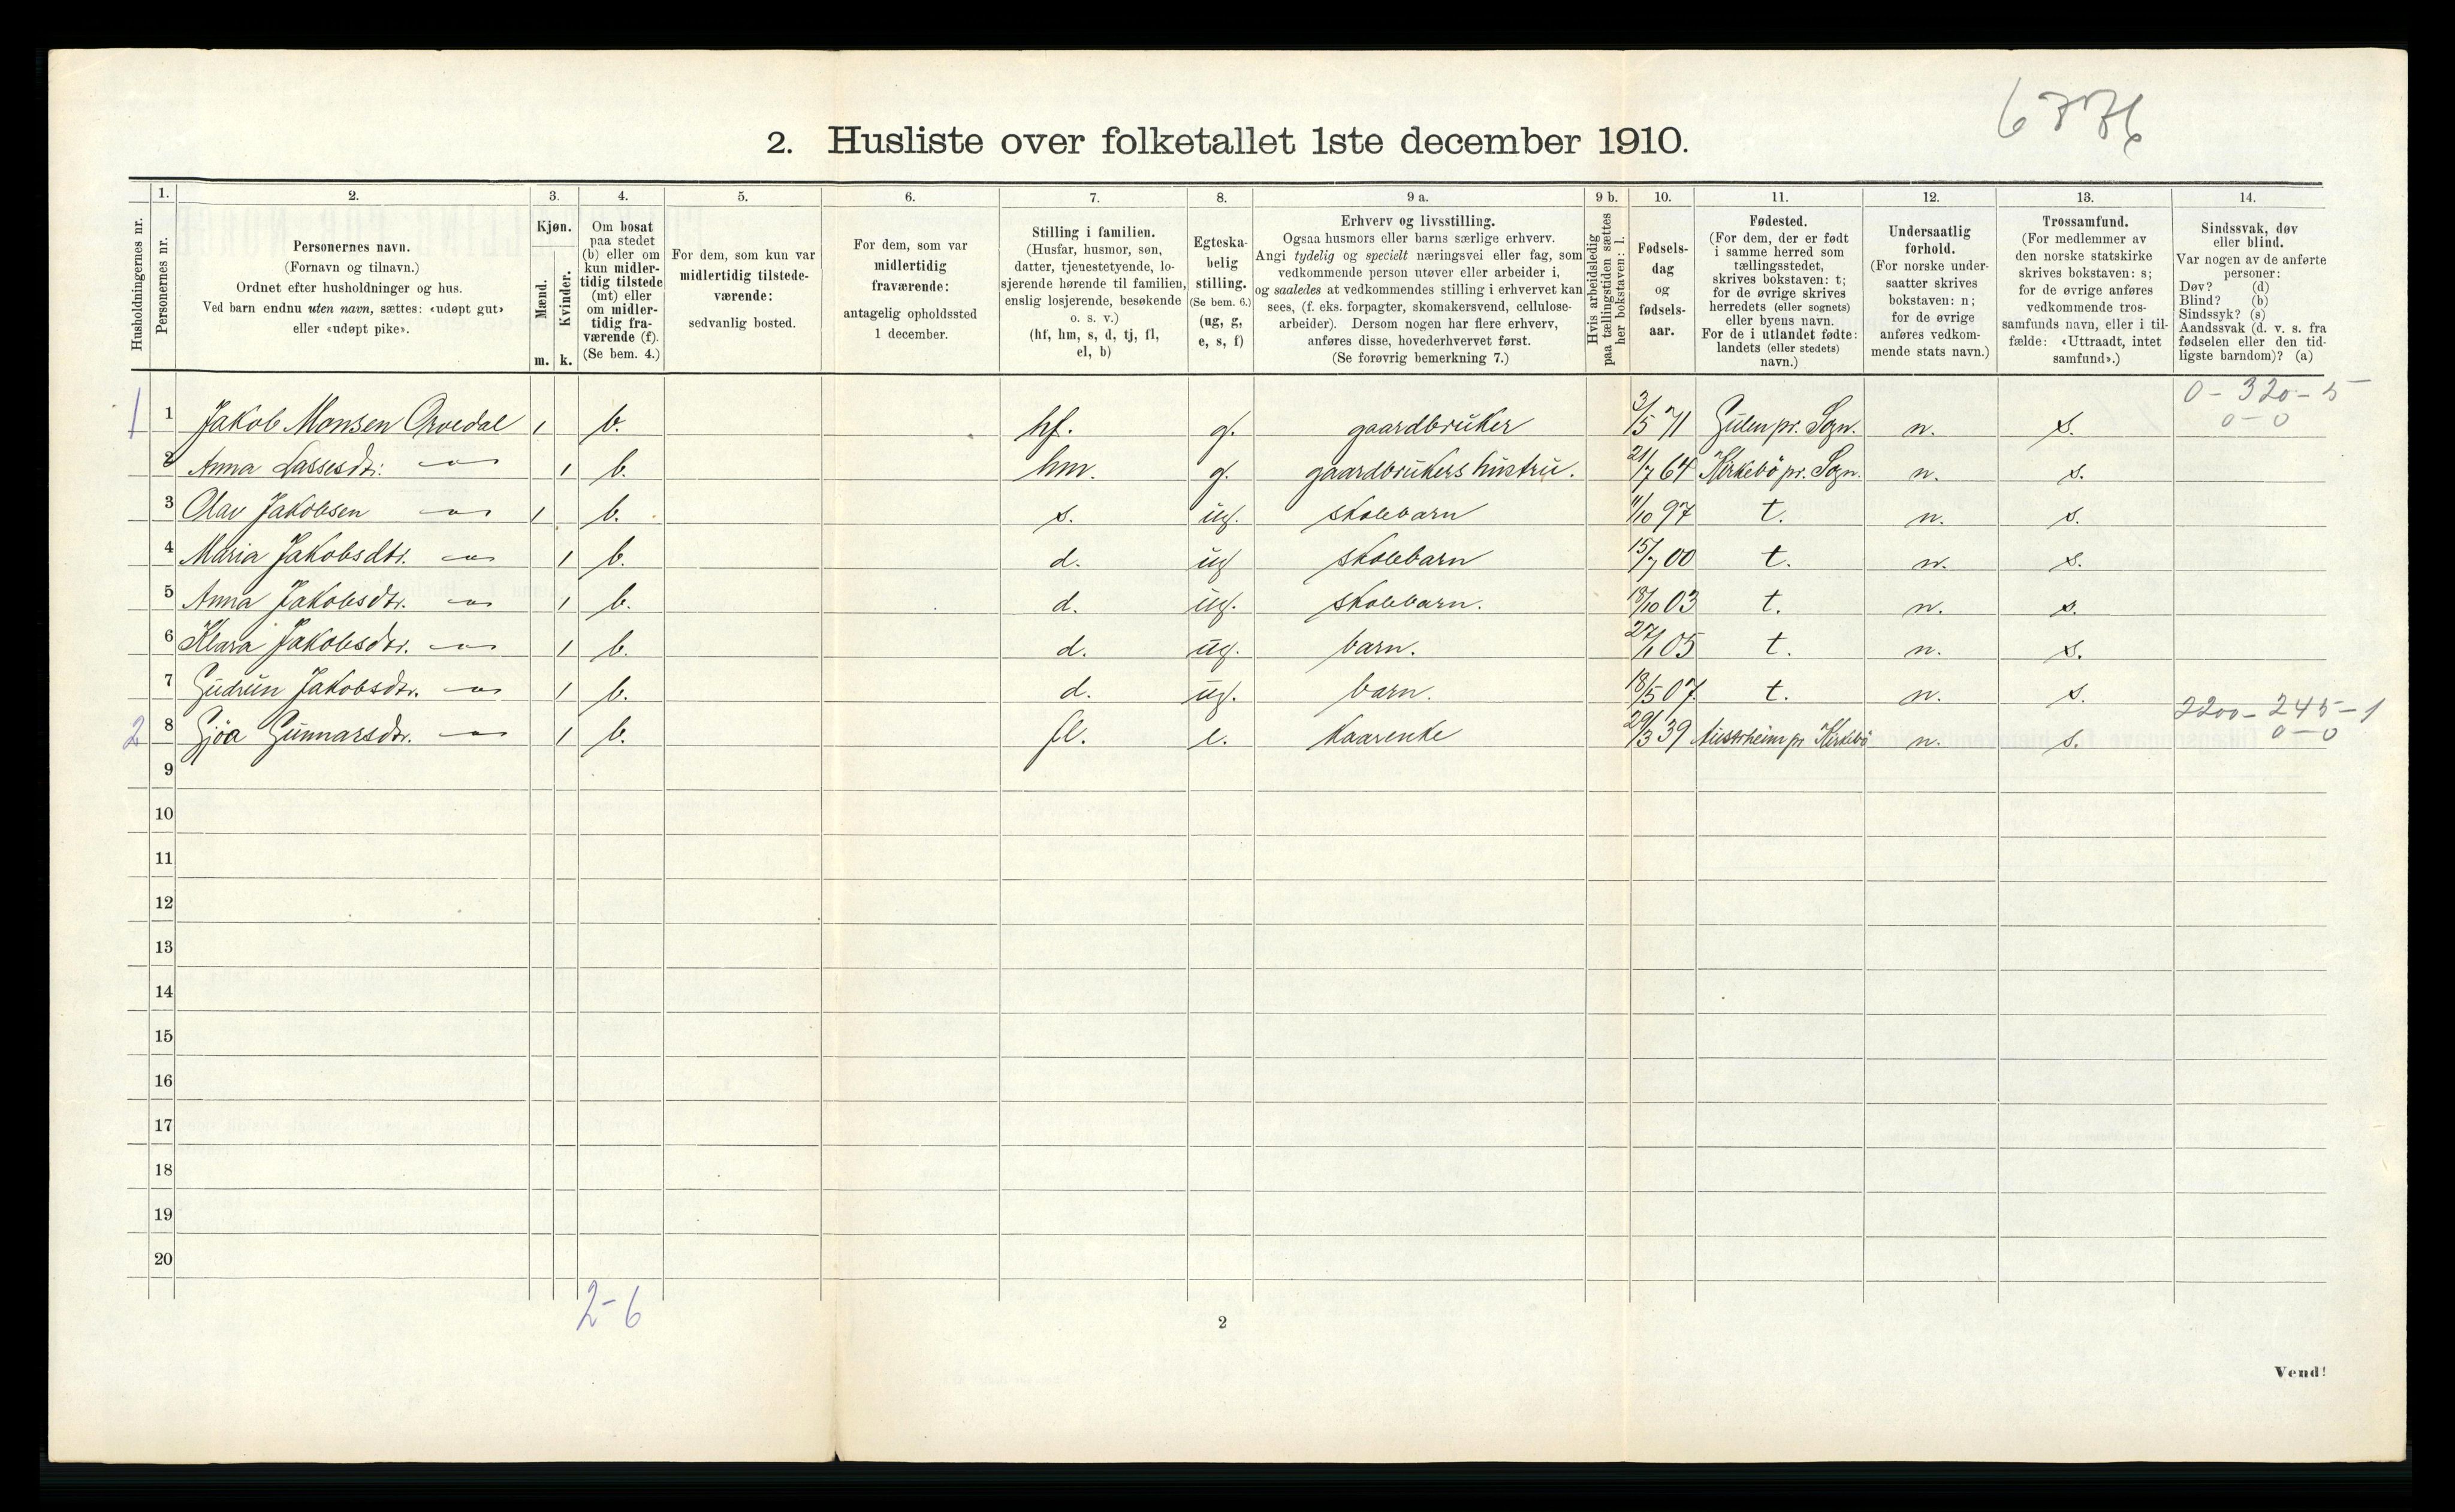 6776
2. Husliste over folketallet 1ste december 1910.
Husholdningernes nr.
1.
Personernes nr.
2.
Personernes navn.
(Fornavn og tilnavn.)
Ordnet efter husholdninger og hus.
Ved barn endnu uten navn, sættes: «udøpt gut»
eller «udøpt pike».
3.
Kjøn.
Mænd.
Kvinder.
m. k.
4.
Om bosat
paa stedet
(b) eller om
kun midler-
tidig tilstede
(mt) eller
om midler-
tidig fra-
værende (f).
(Se bem. 4.)
5.
For dem, som kun var
midlertidig tilstede-
værende:
sedvanlig bosted.
6.
For dem, som var
midlertidig
fraværende:
antagelig opholdssted
1 december.
7.
Stilling i familien.
(Husfar, husmor, søn,
datter, tjenestetyende, lo-
sjerende hørende til familien,
enslig losjerende, besøkende
o. s. v.)
(hf, hm, s, d, tj, fl,
el, b)
8.
Egteska-
belig
stilling.
(Se bem. 6.)
(ug, g,
e, s, f)
9 a.
Erhverv og livsstilling.
Ogsaa husmors eller barns særlige erhverv.
Angi tydelig og specielt næringsvei eller fag, som
vedkommende person utøver eller arbeider i,
og saaledes at vedkommendes stilling i erhvervet kan
sees, (f. eks. forpagter, skomakersvend, cellulose-
arbeider). Dersom nogen har flere erhverv,
anføres disse, hovederhvervet først.
(Se forøvrig bemerkning 7.)
9 b.
Hvis arbeidsledig
paa tællingstiden sættes
her bokstaven: l.
10.
Fødsels-
dag
og
fødsels-
aar.
11.
Fødested.
(For dem, der er født
i samme herred som
tællingsstedet,
skrives bokstaven: t;
for de øvrige skrives
herredets (eller sognets)
eller byens navn.
For de i utlandet fødte:
landets (eller stedets)
navn.)
12.
Undersaatlig
forhold.
(For norske under-
saatter skrives
bokstaven: n;
for de øvrige
anføres vedkom-
mende stats navn.)
13.
Trossamfund.
(For medlemmer av
den norske statskirke
skrives bokstaven: s;
for de øvrige anføres
vedkommende tros-
samfunds navn, eller i til-
fælde: «Uttraadt, intet
samfund».)
14.
Sindssvak, døv
eller blind.
Var nogen av de anførte
personer:
Døv? (d)
Blind? (b)
Sindssyk? (s)
Aandssvak (d. v. s. fra
fødselen eller den tid-
ligste barndom)? (a)
0 - 320 - 5
0 - 0
1 1 Jakob Monsen Ørvedal 1 b. hf. g. gaardbruker 3/5 71 Gulen pr. Sogn. n. s.
2 Anna Lassesdtr. —"— 1 b. hm. g. gaardbrukers hustru. 21/7 64 Kirkebö pr. Sogn. n. s.
3 Olav Jakobsen —"— 1 b. s. ug. skolebarn 11/10 97 t. n. s.
4 Maria Jakobsdtr. —"— 1 b. d. ug skolebarn 15/7 00 t. n. s.
5 Anna Jakobsdtr. —"— 1 b. d. ug. skolebarn. 18/10 03 t. n. s.
6 Klara Jakobsdtr. —"— 1 b. d. ug. barn. 27/1 05 t. n. s.
7 Gudrun Jakobsdtr. —"— 1 b. d. ug. barn. 18/5 07. t. n. s.
2200 - 245 - 1
0 - 0
2 8 Gjöa Gunnarsdtr. —"— 1 b. fl. e. Kaarenke 29/3 39 Austrheim pr Kirkebö n. s.
9
10
11
12
13
14
15
16
17
18
19
20
2 - 6
2
Vend!